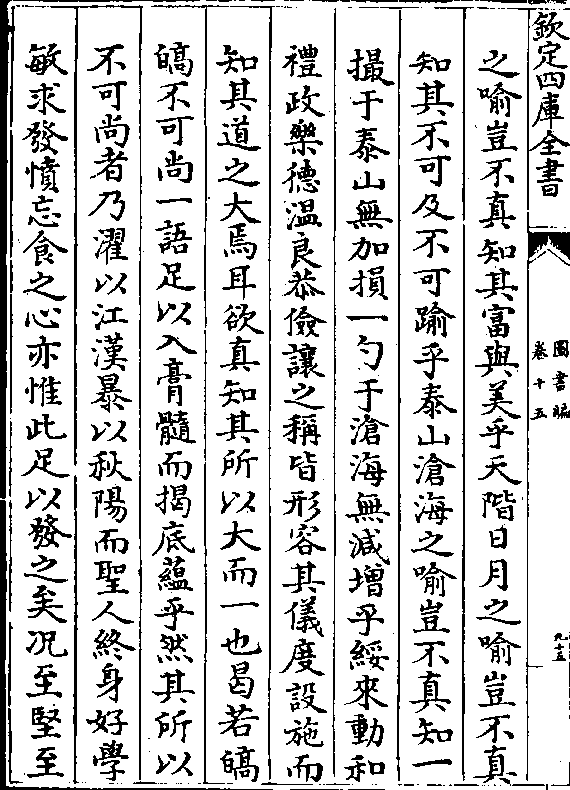 欽定四庫全書
圖書編
卷十五
九十五
之喻豈不真知其富與美乎天階日月之喻豈不真
知其不可及不可踰乎泰山滄海之喻豈不真知一
撮于泰山無加損一勺于滄海無減增乎綏來動和
禮政樂德溫良恭儉讓之稱皆形容其儀度設施而
知其道之大焉耳欲真知其所以大而一也曷若皜
皜不可尚一語足以入膏髓而揭底蘊乎然其所以
不可尚者乃濯以江漢暴以秋陽而聖人終身好學
敏求發憤忘食之心亦惟此足以發之矣况至堅至